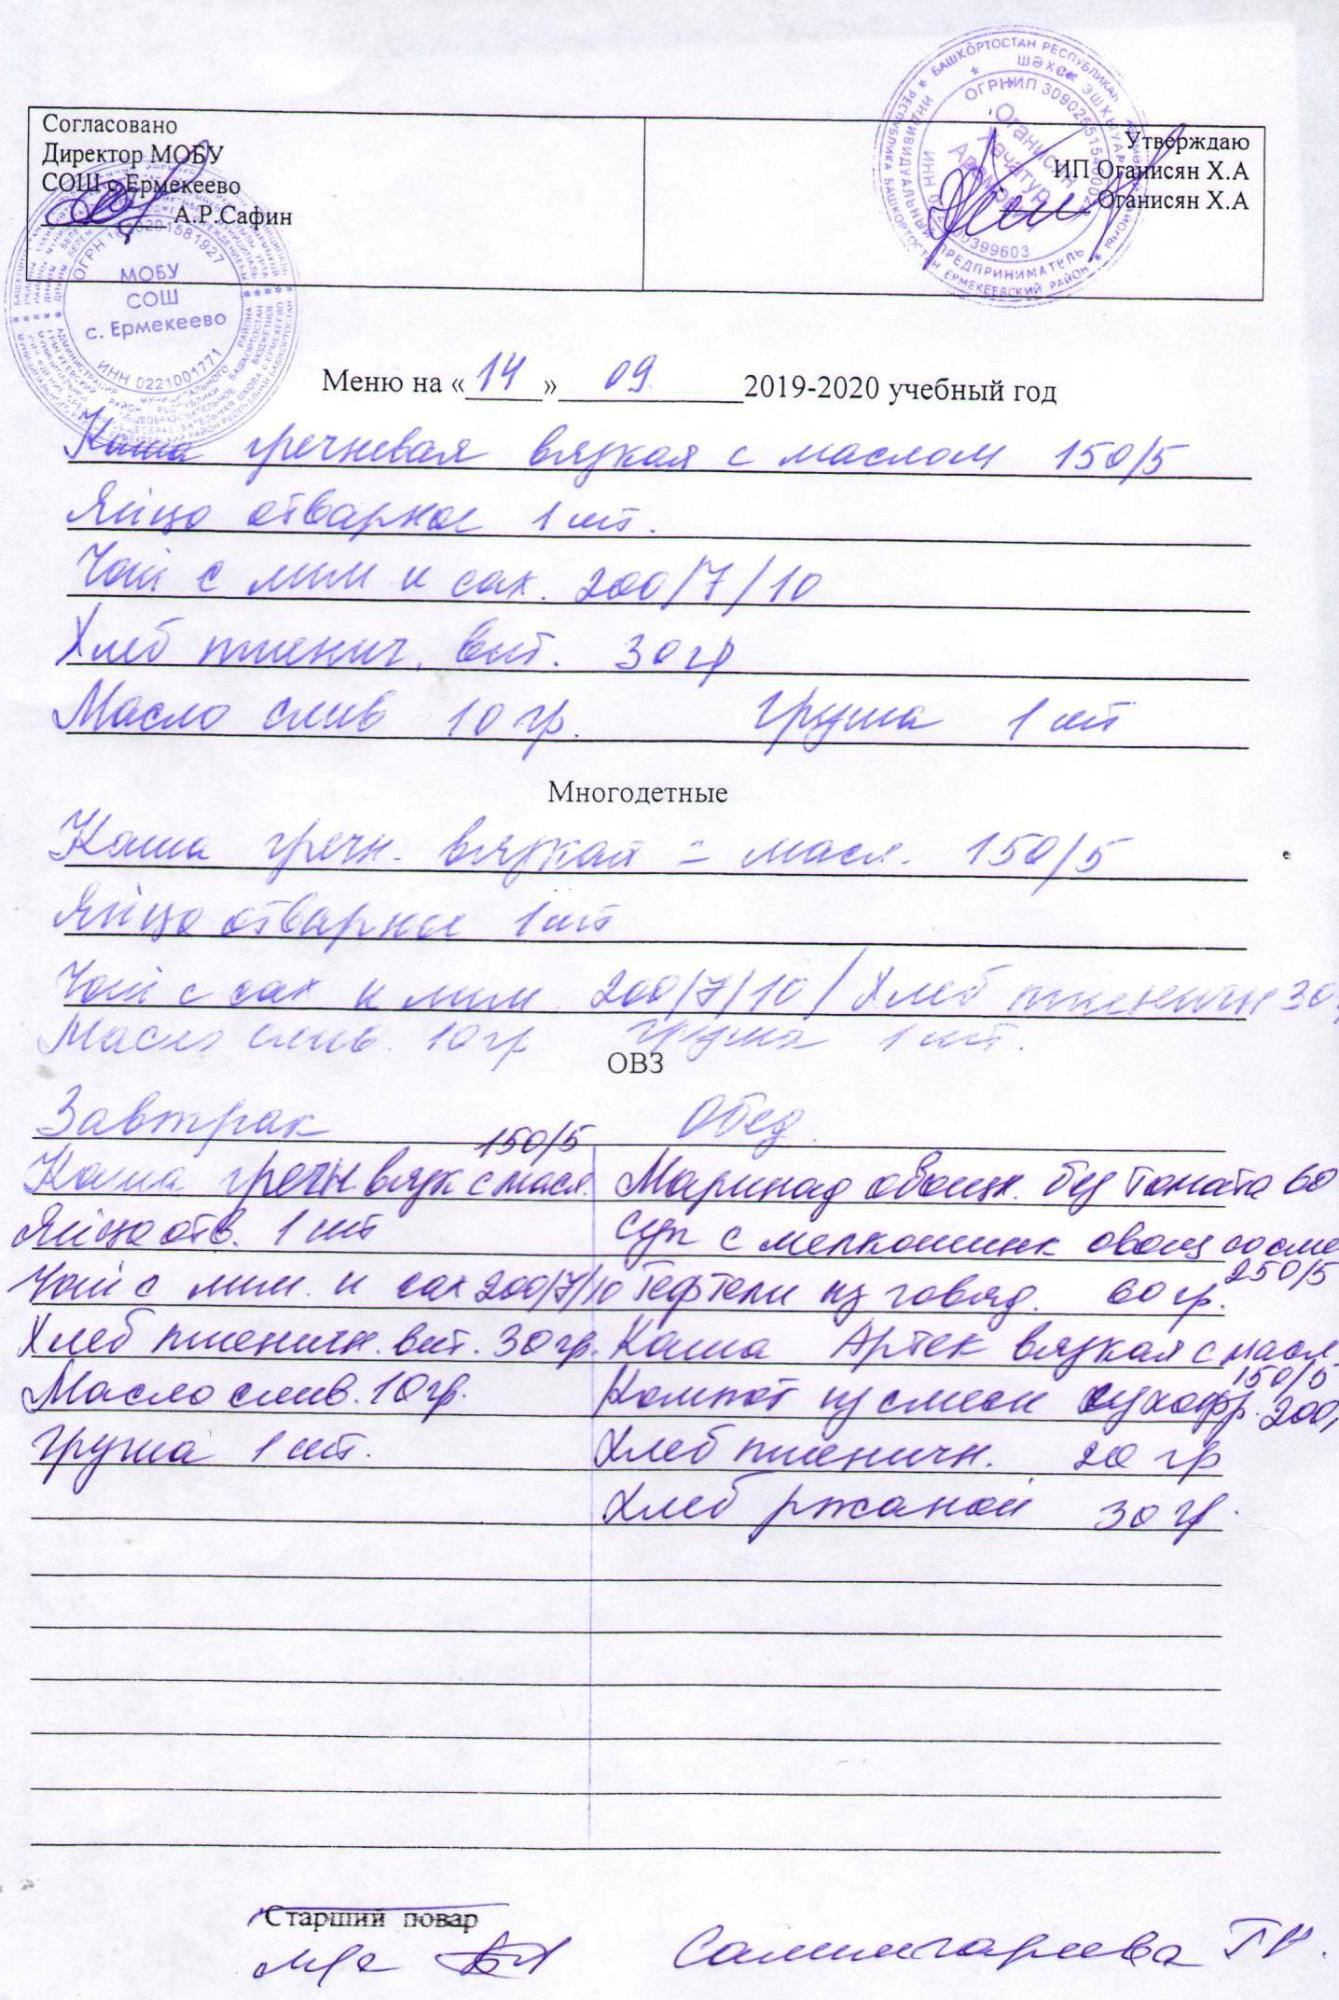 Согласовано
Директор МОБУ
СОШ с.Ермекеево
А.Р.Сафин
Утверждаю
ИП Оганисян Х.А
Оганисян Х.А
МОБУ
СОШ
с. Ермекеево
ИНН 0221001771
Меню на «14» 09. 2019-2020 учебный год
Каша гречневая вязкая с маслом 150/5
Яйцо отварное 1 шт.
Чай с лим и сах. 200/7/10
Хлеб пшенич. вит. 30гр
Масло слив 10 гр. груша 1 шт
Многодетные
Каша гречн. вязкая с масл. 150/5
Яйцо отварное 1 шт
Чай с сах и лим 200/7/10/ Хлеб пшеничн 30
Масло слив. 10 гр груша 1 шт.
ОВЗ
Завтрак Обед
150/5
Каша гречн вязк с масл. Маринад овощн. без томата 60
Яйцо отв. 1 шт Суп с мелкошинк овощ со сме
250/5
Чай с лим. и сах 200/7/10 Тефтели из говяд. 60 гр.
Хлеб пшеничн. вит. 30 гр. Каша Артек вязкая с масл.
150/5
Масло слив. 10 гр. Компот из смеси сухофр. 200
груша 1 шт. Хлеб пшеничн. 20 гр
Хлеб ржаной 30 гр.
Старший повар